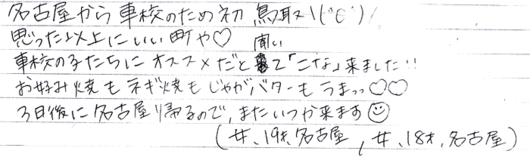 名古屋から車校のため初鳥取\(°ε°)/
思った以上にいい町や♡
車校の子たちにオススメだと聞いて「こな」来ました!!
お好み焼もネギ焼もじゃがバターもうまっっ♡♡
3日後に名古屋帰るので、またいつか来ます☺
(女、19才、名古屋、女、18才、名古屋)